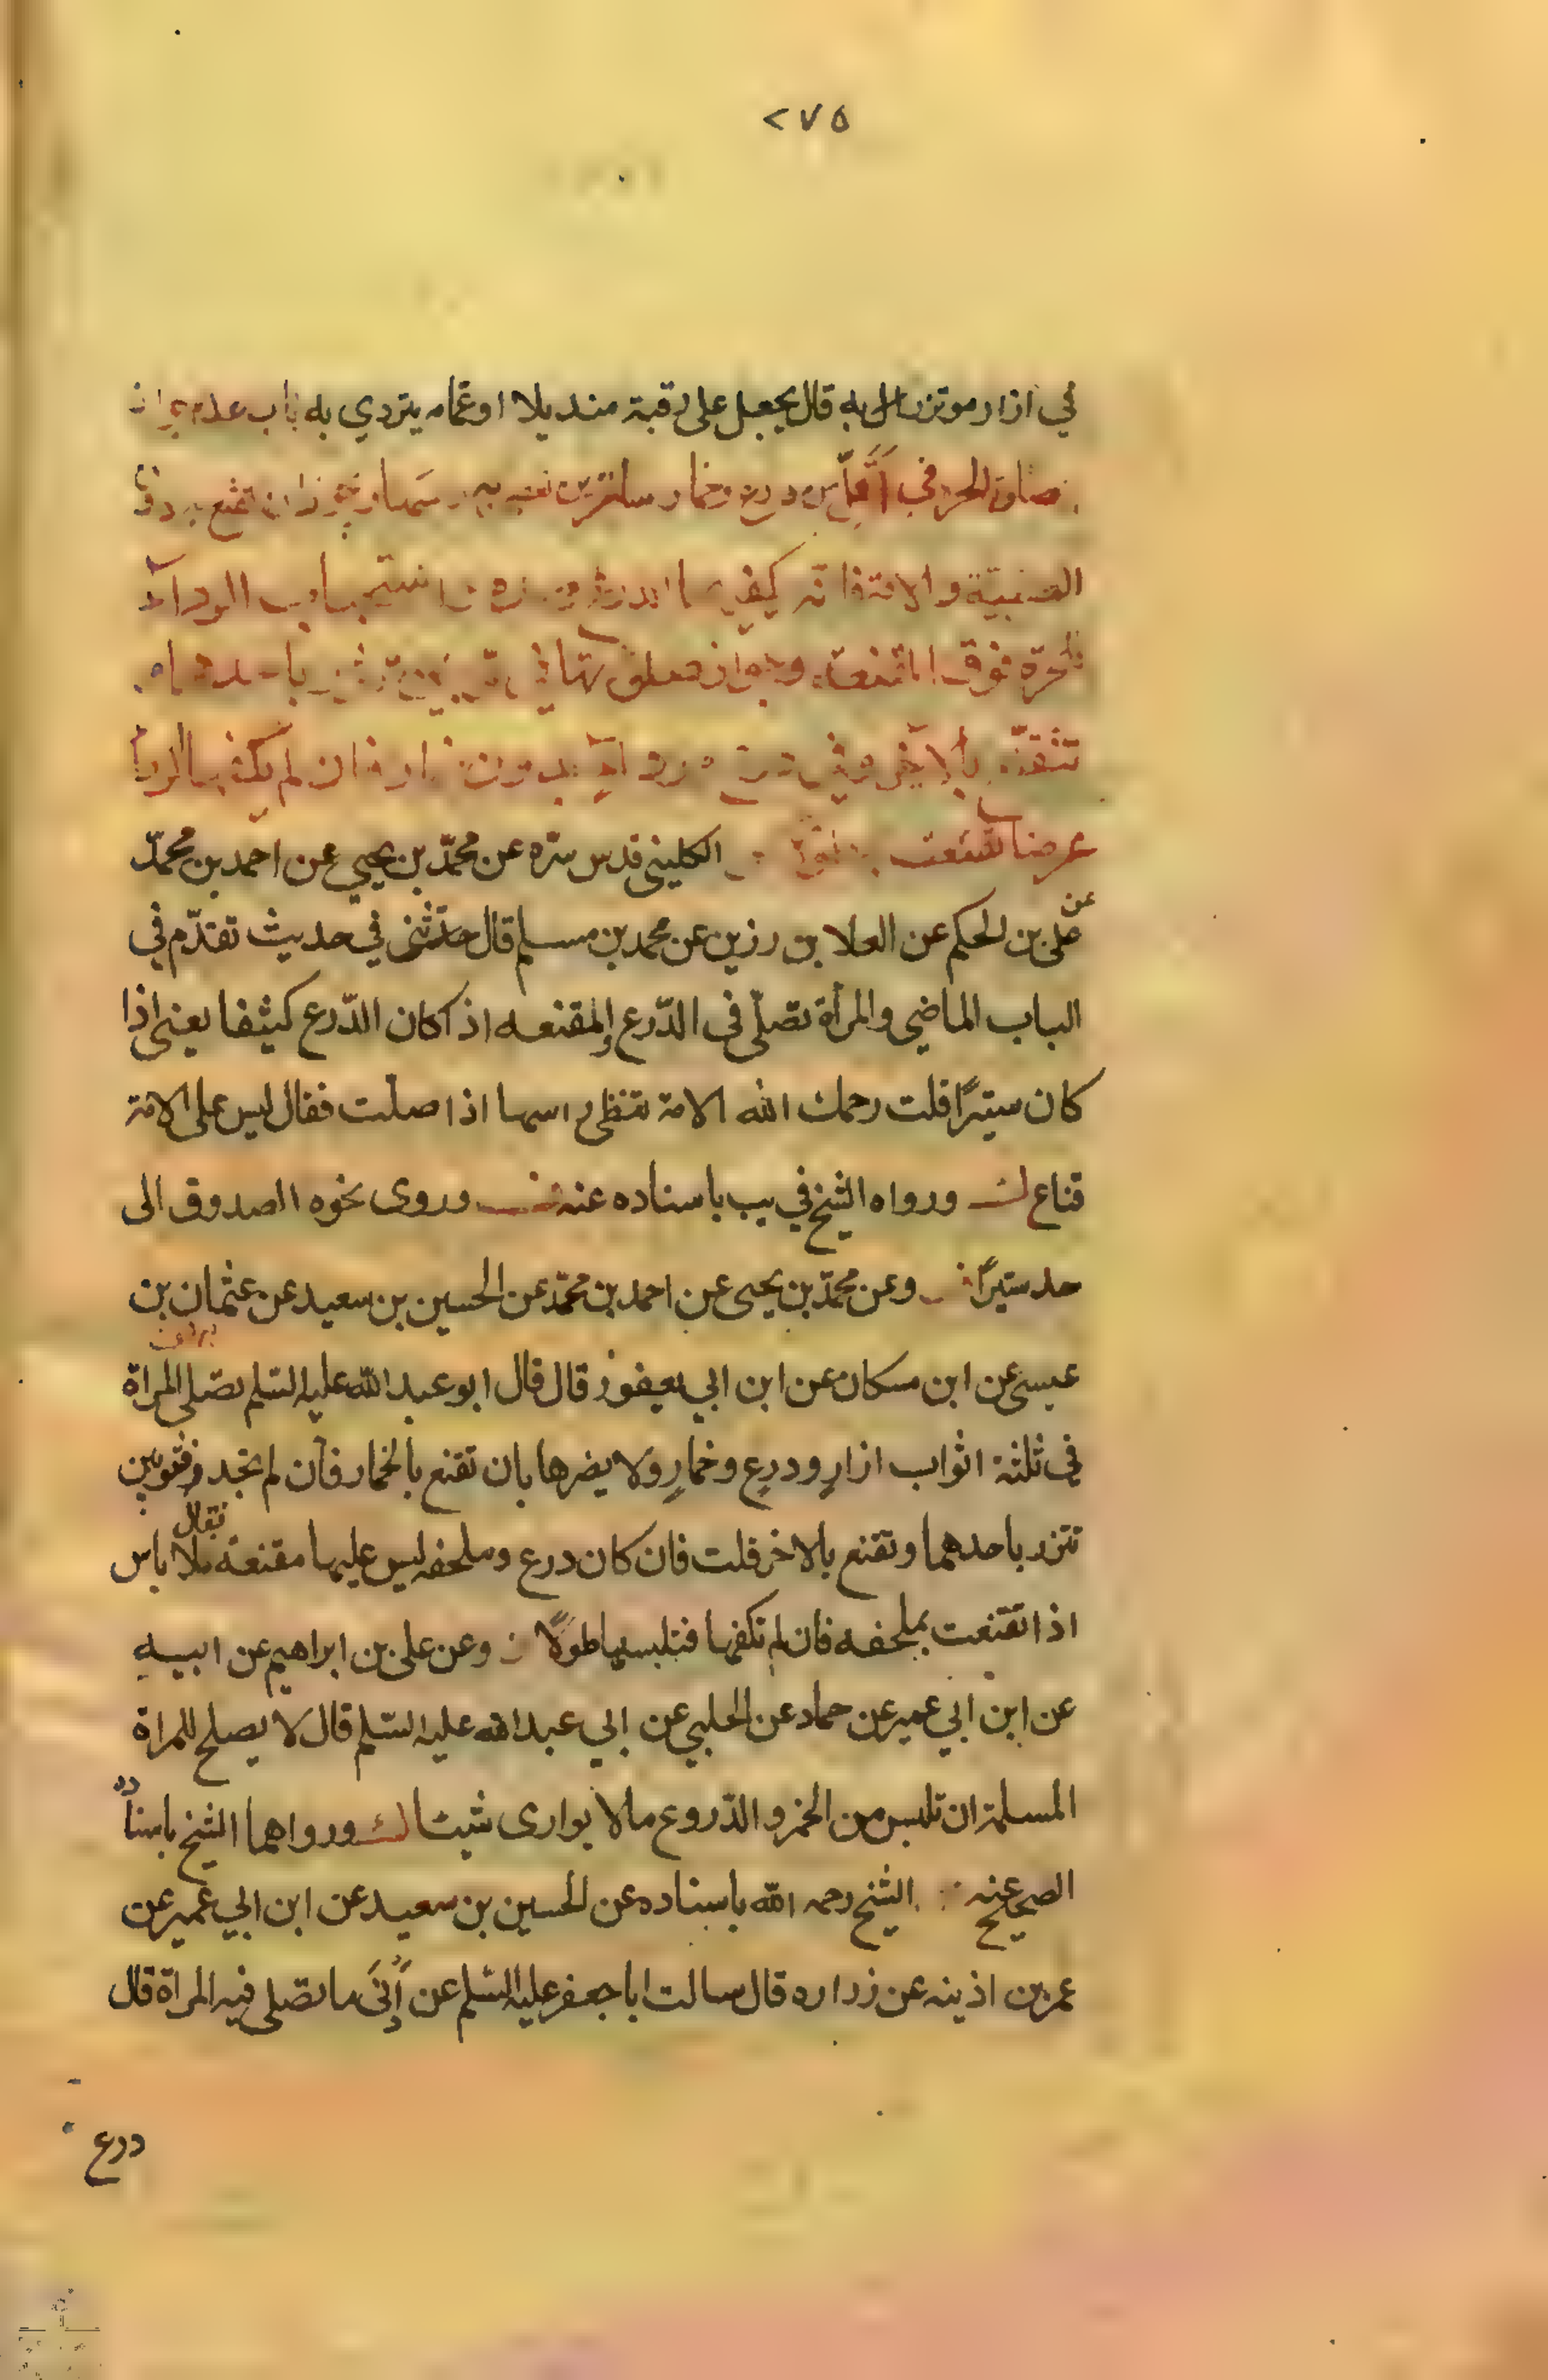 ٢٧٥
في ازار موتزرا به قال يجعل على رقبة منديلا او عمامه يتردي به باب عدم جواز
صلوة الحرة في أقلّ من درع وخمار ساترين
والا كيفى استحباب الرداء
للحرة فوق المقنعة وجواز صلوتها في باحدهما و
تتقنّع بالاخر وفي درع ورداء بدون خمار فان لم يكف الردا
عرضا تقنعت الكليني قدس سرّه عن محمّد بن يحيي عن احمد بن محمّد
عن
علي بن الحكم عن العلا بن رزين عن محمد بن مسلم قال حدّثني في حديث تقدّم في
الباب الماضي والمرأة تصلّي في الدّرع والمقنعه اذا كان الدّرع كثيفا يعني اذا
كان ستيرًا قلت رحمك الله الامة تغطي راسها اذا صلّت فقال ليس على الامة
قناع ورواه الشيخ في يب باسناده عنه وروى نحوه الصدوق الى
حد ستيرًا وعن محمّد بن يحيى عن احمد بن محمّد عن الحسين بن سعيد عن عثمان بن
عيسى عن ابن مسكان عن ابن ابي يعفور قال قال ابو عبد الله عليه السّلم تصّلي المراة
في ثلثة اثواب ازارٍ ودرعٍ وخمارٍ ولا يضرها بان تقنع بالخمار فان لم تجد فثوبين
تتزر باحدهما وتقنع بالاخر قلت فان كان درع وملحفه ليس عليها مقنعة فقال لا باس
اذا تقنعت بملحفه فان لم تكفها فتلبسها طولًا وعن علي بن ابراهيم عن ابيه
عن ابن ابي عمير عن حماد عن الحلبي عن ابي عبد الله عليه السّلم قال لا يصلح للمراة
المسلمة ان تلبس من الخمر والدّروع ما لا يوارى شيئا ورواهما الشيخ باسناده
الصحيح عنه الشيخ رحمه الله باسناده عن الحسين بن سعيد عن ابن ابي عمير عن
عمر بن اذينه عن زراره قال سالت ابا جعفر عليه السّلم عن أدنى ما تصلي فيه المرأة قال
درع